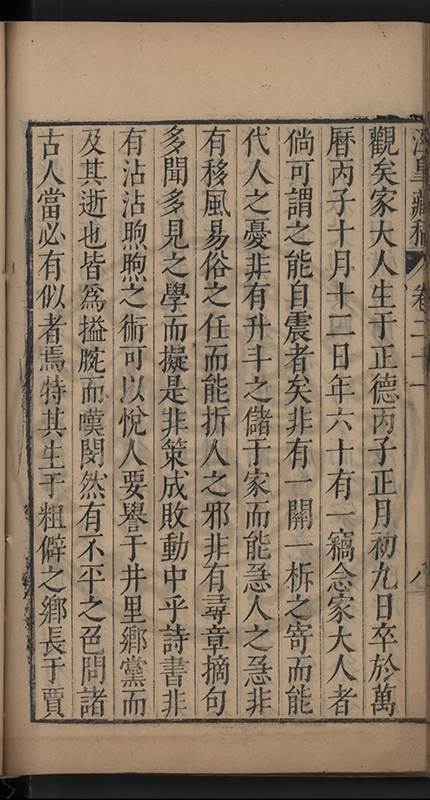 涇臯藏稿 卷二十一 八
觀矣家大人生于正德丙子正月初九日卒於萬
曆丙子十月十二日年六十有一竊念家大人者
倘可謂之能自震者矣非有一關一柝之寄而能
代人之憂非有升斗之儲于家而能急人之急非
有移風易俗之任而能折人之邪非有尋章摘句
多聞多見之學而擬是非策成敗動中乎詩書非
有沾沾煦煦之術可以悅人要譽于井里鄉黨而
及其逝也皆爲搤腕而嘆閔然有不平之色問諸
古人當必有似者焉特其生于粗僻之鄉長于賈